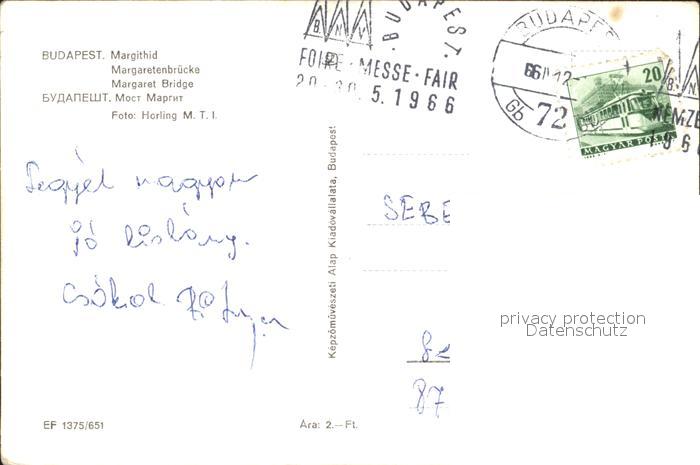 BUDAPEST. Margithid
Margaretenbrücke
Margaret Bridge
БУДАПЕШТ. Мост Маргит
Foto: Horling M. T. I.
BUDAPEST.
B N V
FOIRE · MESSE · FAIR
20-30. 5. 1966
BUDAPEST
72
20
MAGYAR POSTA
B N
NEMZE
1966
Legyél nagyon
jó kislány.
Csókol
Képzőművészeti Alap Kiadóvállalata, Budapest
SEBE
privacy protection
Datenschutz
87
EF 1375/651
Ára: 2.— Ft.